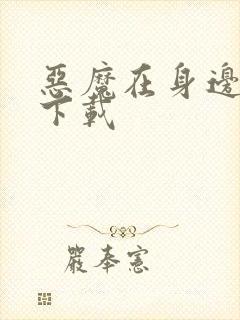 惡魔在身邊
下載
嚴奉憲